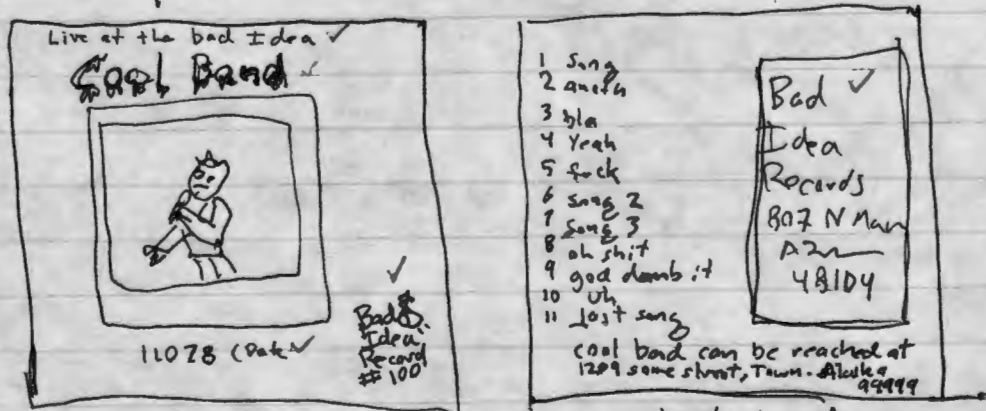 Live at the bad Idea ✓
Cool Band ✓
11078 (Date ✓
✓
Bad $
Idea
Record
# 100
1 Song
2 anoth
3 bla
4 Yeah
5 fuck
6 song 2
7 song 3
8 oh shit
9 god damb it
10 uh
11 last song
Bad ✓
Idea
Records
807 N Main
A2
48104
cool band can be reached at
1289 some street, Town. Alaska
99999